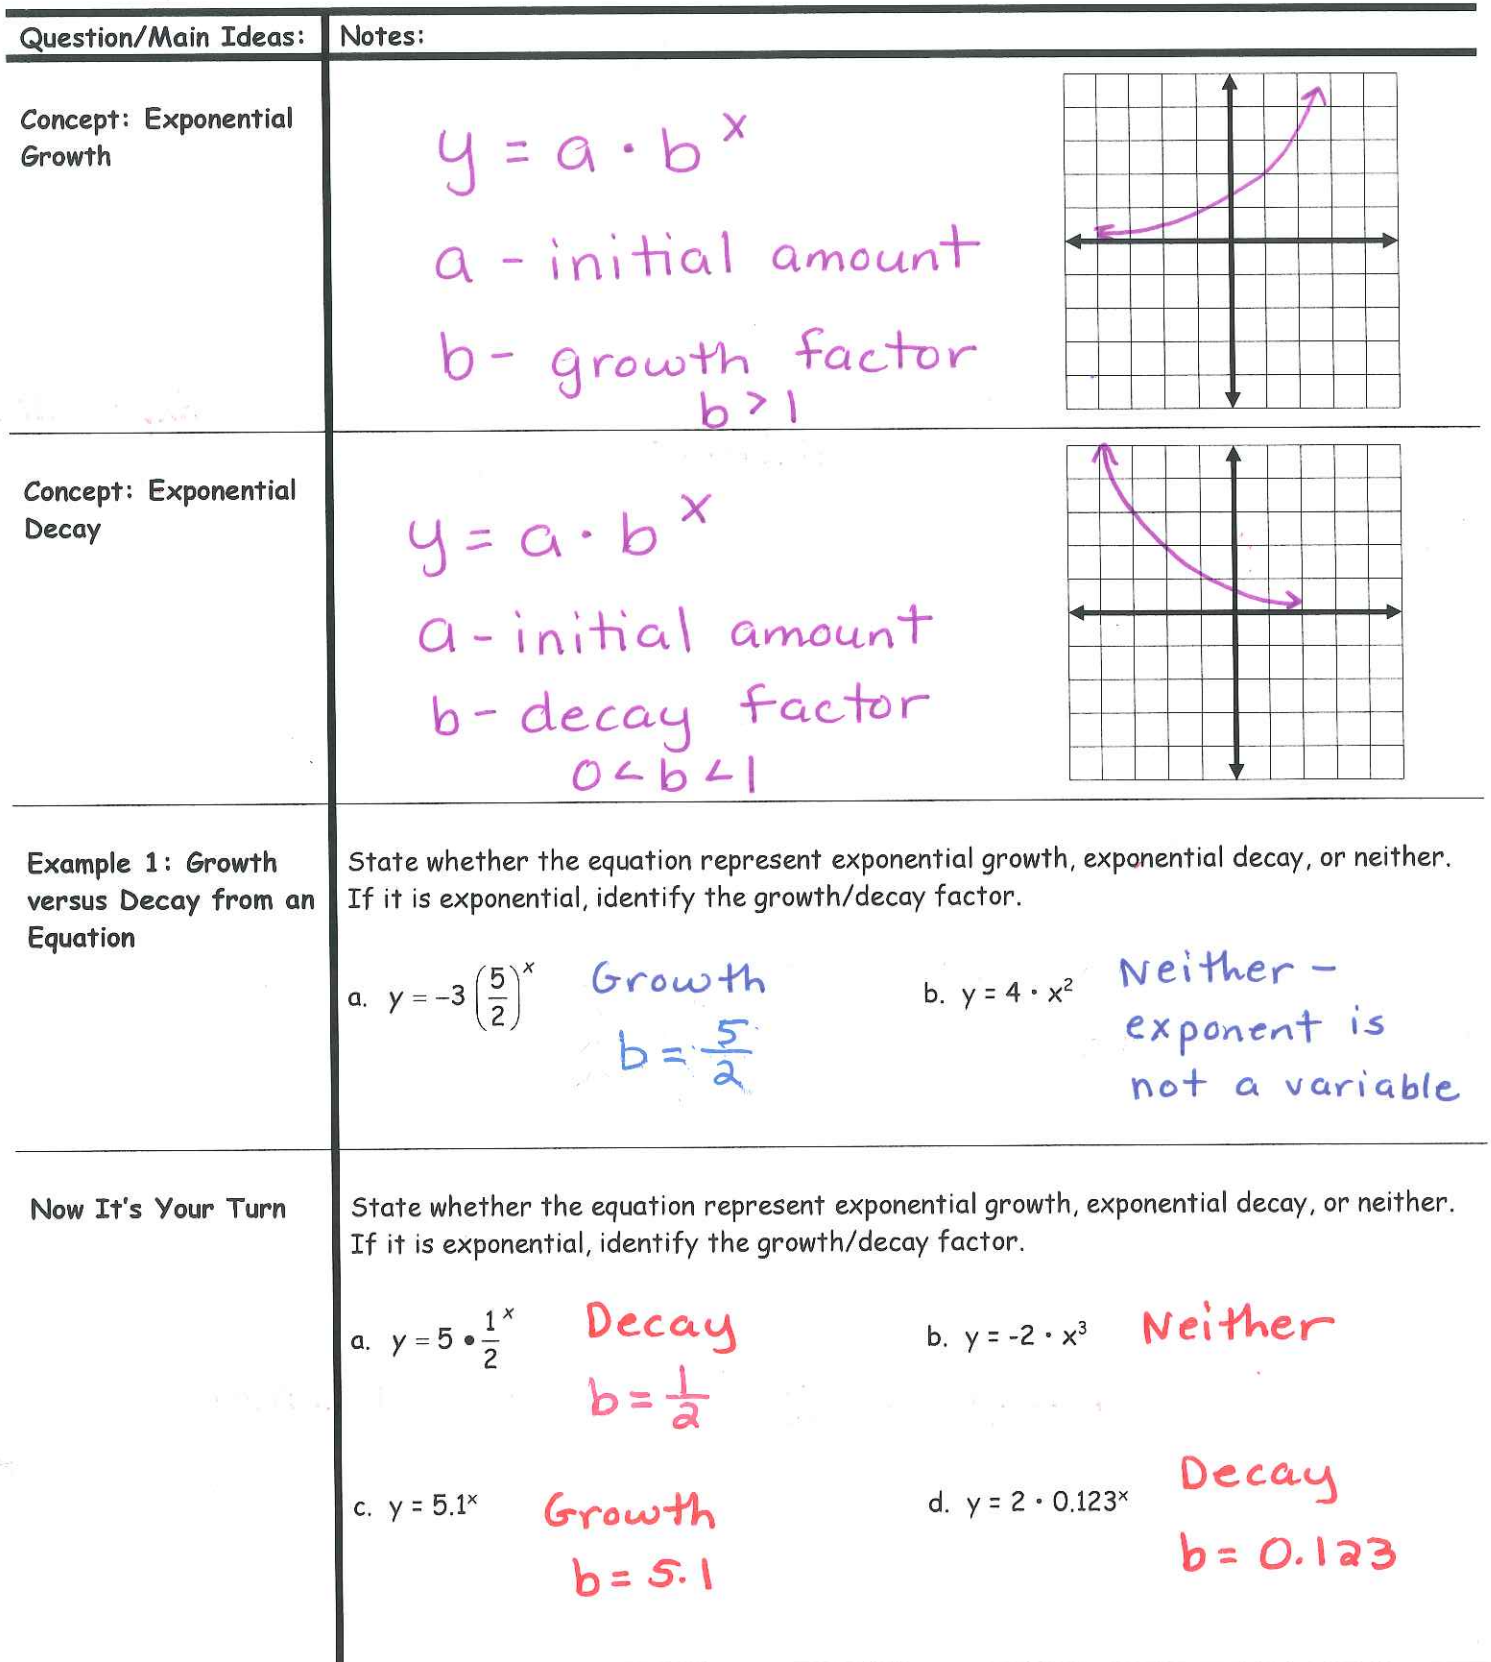 Question/Main Ideas:
Notes:
Concept: Exponential
Growth
y = a · b^x
a - initial amount
b - growth factor
b > 1
Concept: Exponential
Decay
y = a · b^x
a - initial amount
b - decay factor
0 < b < 1
Example 1: Growth
versus Decay from an
Equation
State whether the equation represent exponential growth, exponential decay, or neither.
If it is exponential, identify the growth/decay factor.
a. y = -3 (5/2)^x
Growth
b = 5/2
b. y = 4 · x²
Neither -
exponent is
not a variable
Now It's Your Turn
State whether the equation represent exponential growth, exponential decay, or neither.
If it is exponential, identify the growth/decay factor.
a. y = 5 • 1/2^x
Decay
b = 1/2
b. y = -2 · x³
Neither
c. y = 5.1^x
Growth
b = 5.1
d. y = 2 · 0.123^x
Decay
b = 0.123